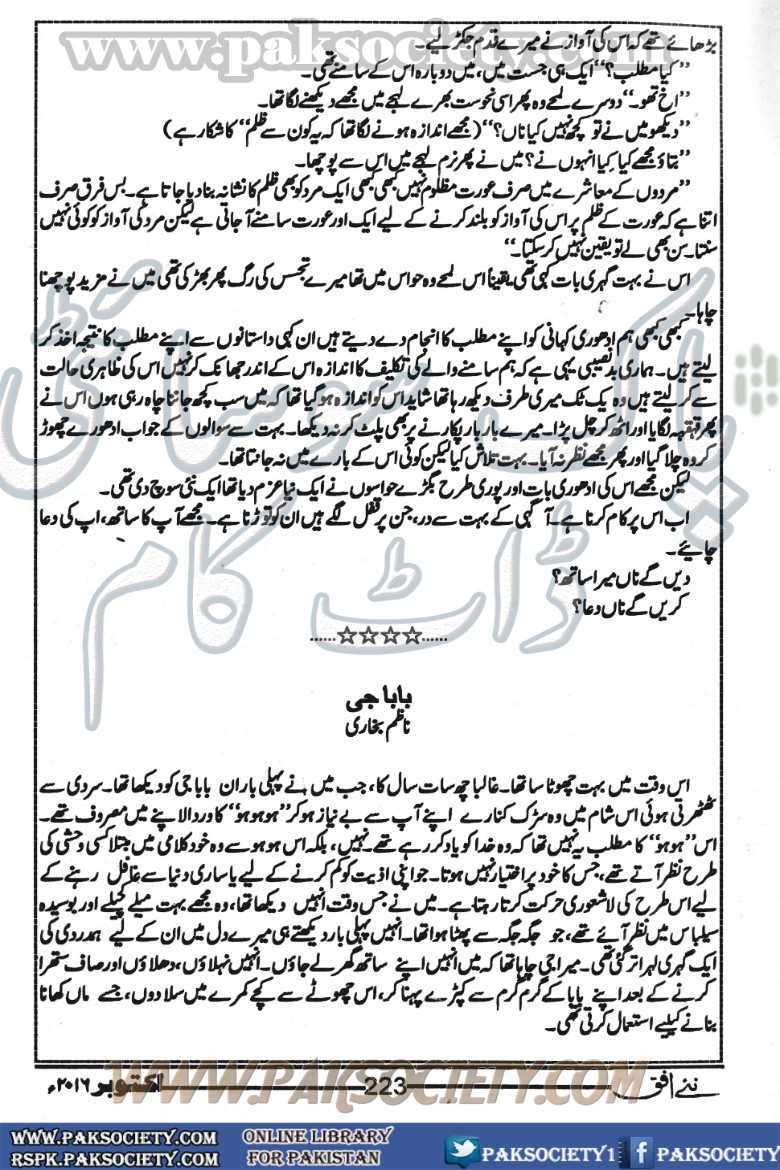 www.paksociety.com
بڑھائے تھے کہ اس کی آواز نے میرے قدم جکڑ لیے۔
’’کیا مطلب؟‘‘ ایک ہی جست میں، میں دوبارہ اس کے سامنے تھی۔
’’اخ تھو۔‘‘ دوسرے لمحے وہ پھر اسی نحوست بھرے لہجے میں مجھے دیکھنے لگا تھا۔
’’دیکھو میں نے تو کچھ نہیں کیا ناں؟‘‘ (مجھے اندازہ ہونے لگا تھا کہ یہ کون سے ظلم‘‘ کا شکار ہے)
’’بتاؤ مجھے کیا کیا انہوں نے؟ میں نے پھر نرم لہجے میں اس سے پوچھا۔
’’مردوں کے معاشرے میں صرف عورت مظلوم نہیں کبھی کبھی ایک مرد کو بھی ظلم کا نشانہ بنا دیا جاتا ہے۔ بس فرق صرف
اتنا ہے کہ عورت کے ظلم پر اس کی آواز کو بلند کرنے کے لیے ایک اور عورت سامنے آ جاتی ہے لیکن مرد کی آواز کو کوئی نہیں
سنتا۔ سن بھی لے تو یقین نہیں کر سکتا۔‘‘
اس نے بہت گہری بات کہی تھی یقیناً اس لمحے وہ حواس میں تھا میرے تجسس کی رگ پھر بھڑکی تھی میں نے مزید پوچھنا
چاہا۔
کبھی کبھی ہم ادھوری کہانی کو اپنے مطلب کا انجام دے دیتے ہیں ان کہی داستانوں سے اپنے مطلب کا نتیجہ اخذ کر
لیتے ہیں۔ ہماری بدنصیبی یہی ہے کہ ہم سامنے والے کی تکلیف کا اندازہ اس کے اندر جھانک کر نہیں اس کی ظاہری حالت
سے کر لیتے ہیں وہ یک ٹک میری طرف دیکھ رہا تھا شاید اس کو اندازہ ہو گیا تھا کہ میں سب کچھ جاننا چاہ رہی ہوں اس نے
پھر قہقہہ لگایا اور اٹھ کر چل پڑا۔ میرے بار بار پکارنے پر بھی پلٹ کر نہ دیکھا۔ بہت سے سوالوں کے جواب ادھورے چھوڑ
کر وہ چلا گیا اور پھر مجھے نظر نہ آیا۔ بہت تلاش کیا لیکن کوئی اس کے بارے میں نہ جانتا تھا۔
لیکن مجھے اس کی ادھوری بات اور پوری طرح بگڑے حواسوں نے ایک نیا عزم دیا تھا ایک نئی سوچ دی تھی۔
اب اس پر کام کرنا ہے۔ آگہی کے بہت سے در، جن پر قفل لگے ہیں ان کو توڑنا ہے۔ مجھے آپ کا ساتھ، اپ کی دعا
چاہیے۔
دیں گے ناں میرا ساتھ؟
کریں گے ناں دعا؟
......☆☆☆☆......
پاک سوسائٹی
ڈاٹ کام
بابا جی
ناظم بخاری
اس وقت میں بہت چھوٹا سا تھا۔ غالباً چھ سات سال کا، جب میں نے پہلی بار ان بابا جی کو دیکھا تھا۔ سردی سے
ٹھٹھرتی ہوئی اس شام میں وہ سڑک کنارے اپنے آپ سے بے نیاز ہو کر ’’ہوہوہو‘‘ کا ورد الاپنے میں مصروف تھے۔
اس ’’ہوہو‘‘ کا مطلب یہ نہیں تھا کہ وہ خدا کو یاد کر رہے تھے۔ نہیں، بلکہ اس ہوہو سے وہ خود کلامی میں مبتلا کسی وحشی کی
طرح نظر آتے تھے، جس کا خود پر اختیار نہیں ہوتا۔ جو اپنی اذیت کو کم کرنے کے لیے یا ساری دنیا سے غافل رہنے کے
لیے اس طرح کی لاشعوری حرکت کرتا رہتا ہے۔ میں نے جس وقت انہیں دیکھا تھا، وہ مجھے بہت میلے کچیلے اور بوسیدہ
سے لباس میں نظر آئے تھے، جو جگہ جگہ سے پھٹا ہوا تھا۔ انہیں پہلی بار دیکھتے ہی میرے دل میں ان کے لیے ہمدردی کی
ایک گہری لہر اتر گئی تھی۔ میرا جی چاہا تھا کہ میں انہیں اپنے ساتھ گھر لے جاؤں۔ انہیں نہلاؤں، دھلاؤں اور صاف ستھرا
کرنے کے بعد اپنے بابا کے گرم گرم سے کپڑے پہنا کر، اس چھوٹے سے کچے کمرے میں سلا دوں، جسے ماں کھانا
بنانے کیلیے استعمال کرتی تھی۔
WWW.PAKSOCIETY.COM
نئے افق 223 اکتوبر ۲۰۱۶ء
WWW.PAKSOCIETY.COM
RSPK.PAKSOCIETY.COM
ONLINE LIBRARY
FOR PAKISTAN
PAKSOCIETY1
PAKSOCIETY